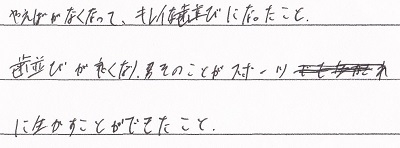 やえばがなくなって、キレイな歯並びになったこと。
歯並びが良くなり、そのことがスポーツ
に生かすことができたこと。